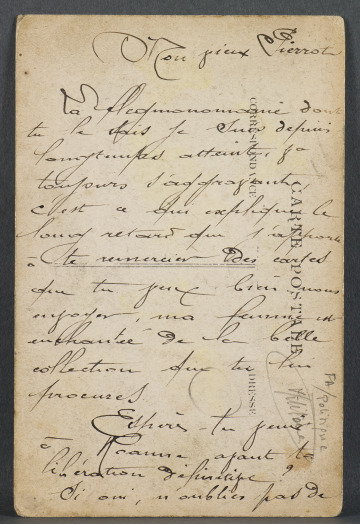 Mon vieux Pierrot
La Flegmonomanie dont
tu le sais je suis depuis
longtemps atteint, va
toujours s'aggravant,
c'est ce qui explique le
long retard que j'apporte
à te remercier des cartes
que tu veux bien nous
envoyer, ma femme est
enchantée de la belle
collection que tu lui
procures.
Espères-tu venir
à Roanne avant ta
libération définitive ?
Si oui, n'oublies pas de
CARTE POSTALE
CORRESPONDANCE
ADRESSE
FA/Politique
Militaire